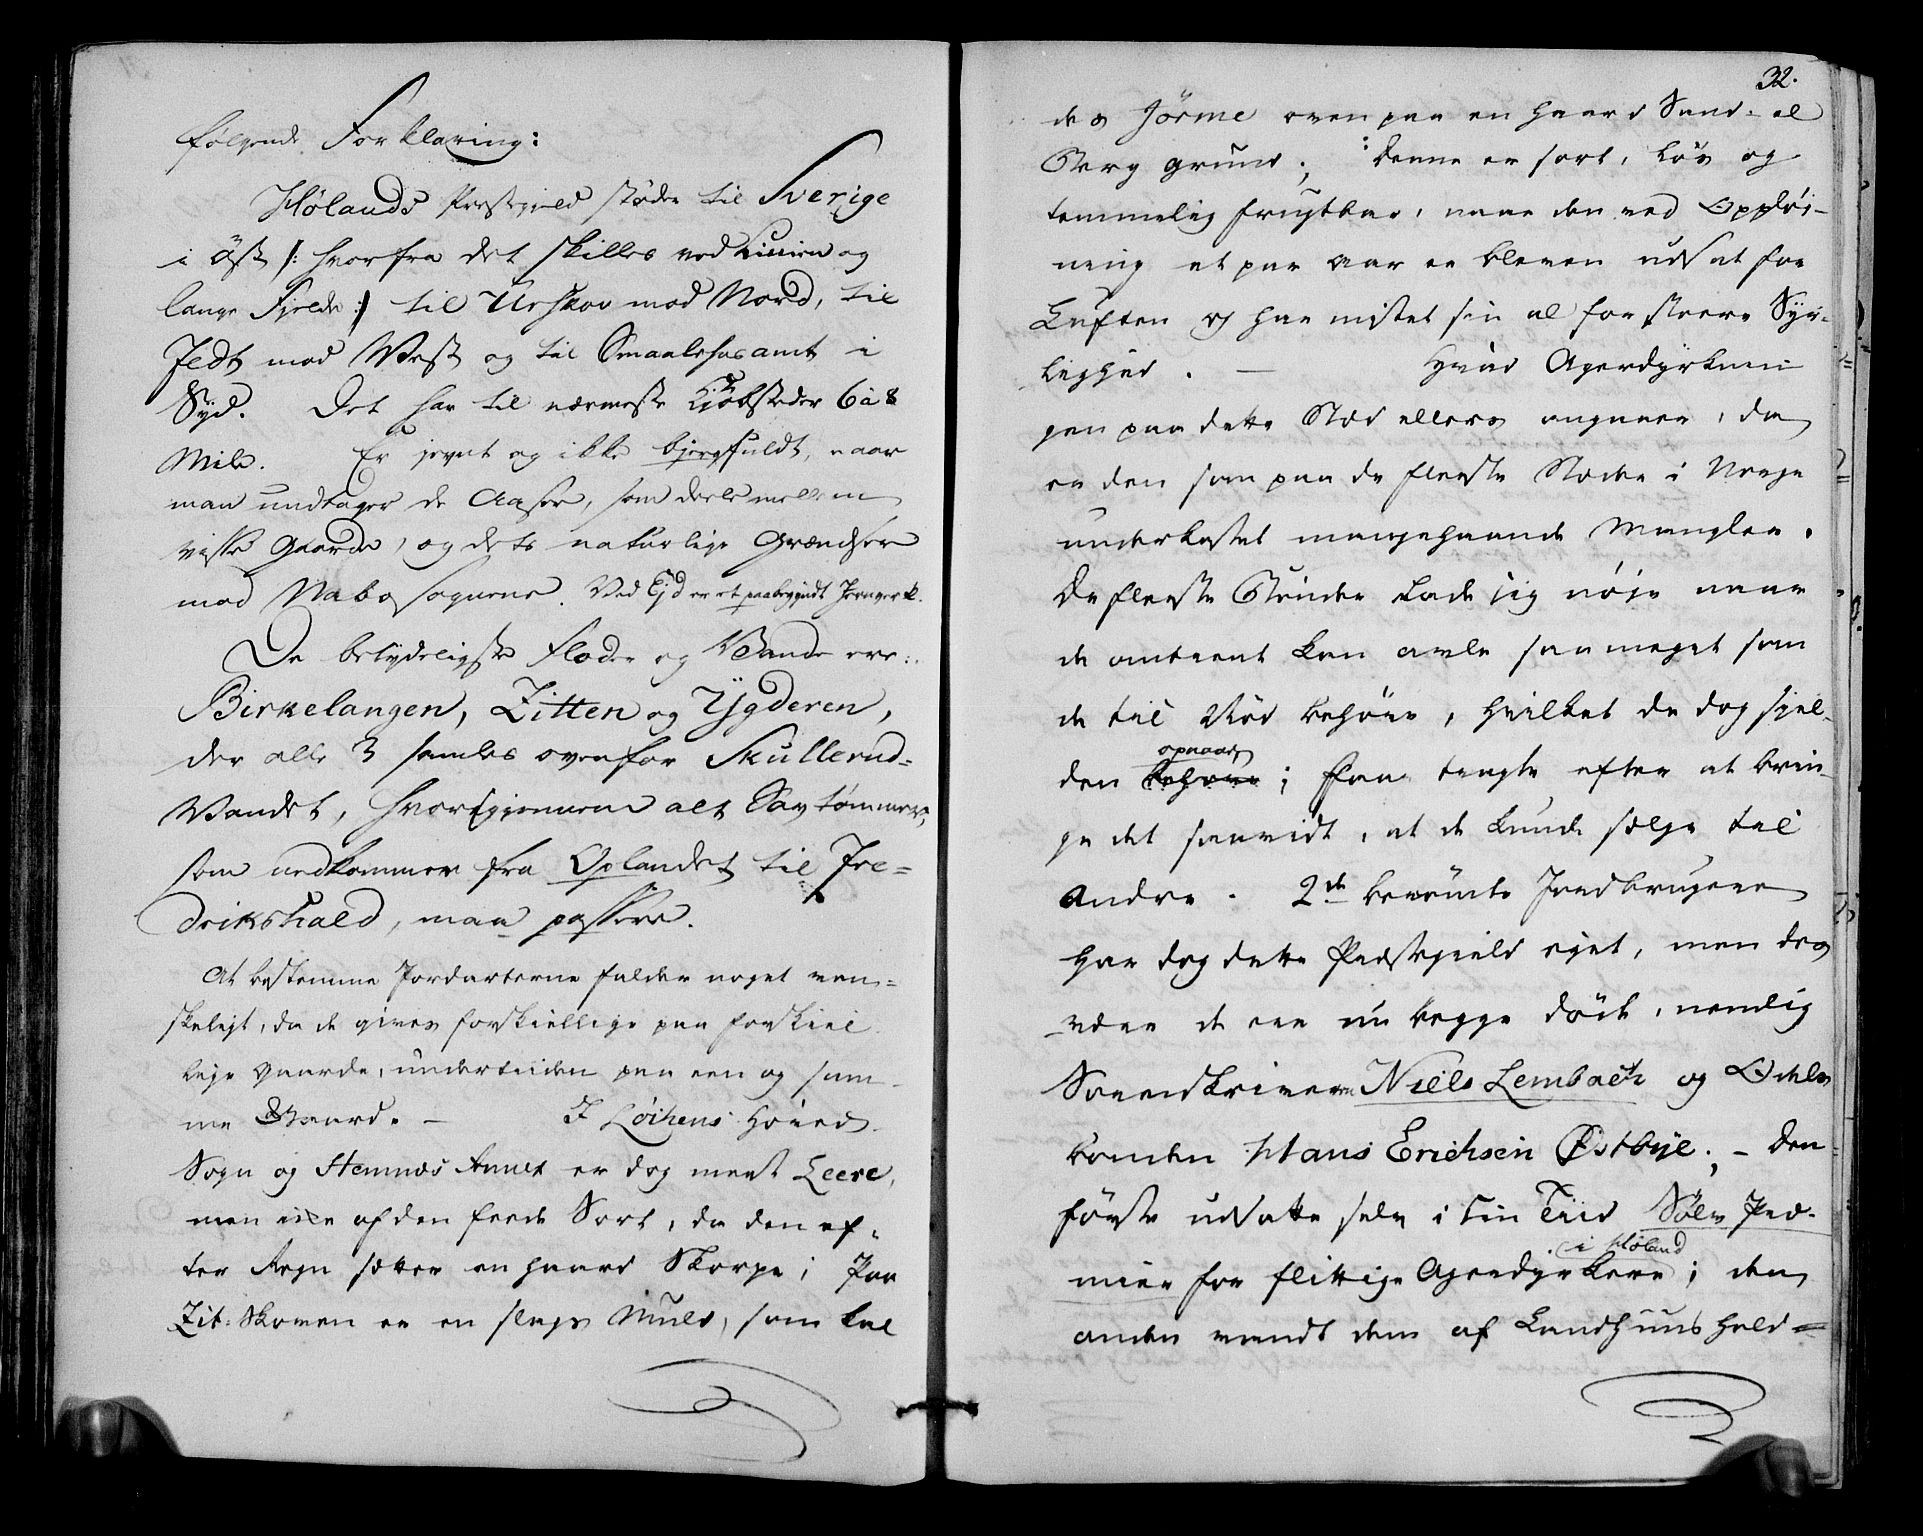 følgende Forklaring:
Hølands Præstegield støder til Sverige
i Öst /: hvorfra det skilles ved Linien og
lange Fjelde :/ til Urskov mod Nord, til
Fedt mod Vest og til Smaalehns amt i
Syd. Det har til nærmeste Kjøbsteder 6 à 8
Mile. Er jevnt og ikke bjergfuldt, naar
man undtager de Aaser, som deele mellem
visse Gaarde, og dets naturlige Grændser
mod Nabo Sognene. Ved Ejd er et paabegyndt Jernverk.
De betydeligste Floder og Vande ere:
Birkelangen, Zitten og Ygderen,
der alle 3 samles ovenfor Skullerud-
Vandet, hvorigjennem alt Sav tømmer,
som nedkommer fra Oplandet til Fre-
drikshald, maa passere.
At bestemme Jordarterne falder noget van-
skeligt, da de gives forskiellige paa forskiel
lige Gaarde, undertiiden paa een og sam-
me Gaard. — I Løikens Hoved
Sogn og Hemnæs Annex er dog meest Leere,
men ikke af den feede Sort, da den ef-
ter Regn sætter en haard Skorpe; Paa
Zit-Skoven er en slags Muld, som kal
32.
des Jörme oven paa en haard Sand- al
Berg grund; denne er sort, løs og
temmelig frugtbar, naar den ved Oppløi-
ning et par Aar er bleven udsat for
Luften og har mistet sin al for stoere Syr-
lighed. — Hvad Agerdyrknin
gen paa dette Stæd ellers angaaer, da
er den som paa de fleeste Stæder i Norge
underkastet mangehaande Mangler.
De fleeste Bönder lade sig nöje naar
de omtrent kan avle saa meget som
de til Brød behöve, hvilket de dog sjel-
den opnaaer behøve; faa tragte efter at brin-
ge det saavidt, at de kunde sælge til
Andre. 2de berømte Jordbrugere
har dog dette Præstegield ejet, men des
være de ere nu begge döde, nemlig
Sorenskriver Niels Lembach og Odels
bonden Hans Erichsen Østbye; — Den
första udsatte selv i sin Tiid Sølv Præ-
mier for flittige Agerdyrkere i Høland; den
anden vandt dem af Landhuushold=